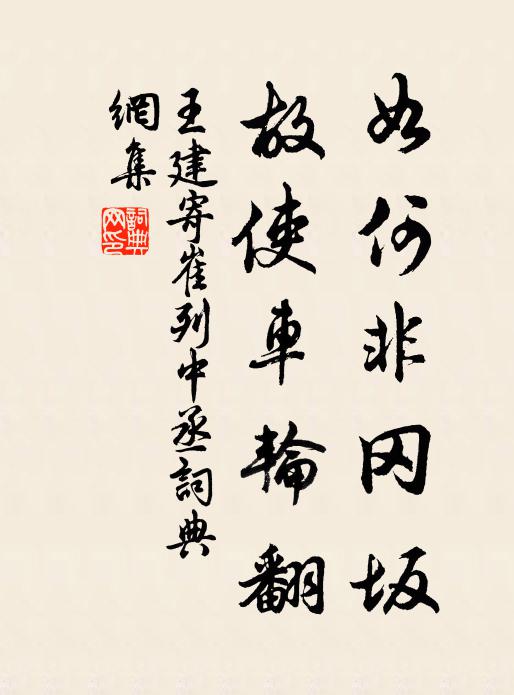 如何非冈坂
故使車輪翻
王建寄崔列中丞詞典
網集
詞典
网印